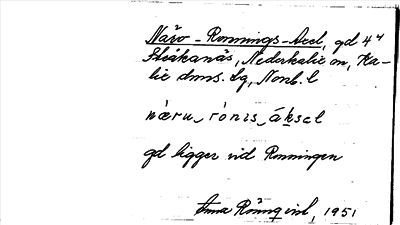 Näro-Ronnings-Axel, gd 4⁴
Storkanäs, Nederkalix on, Ka-
lix dnns. Lg, Nonb. l
næru rónis áksel
gd ligger vid Ronningen
Anna Rönnqvist, 1951